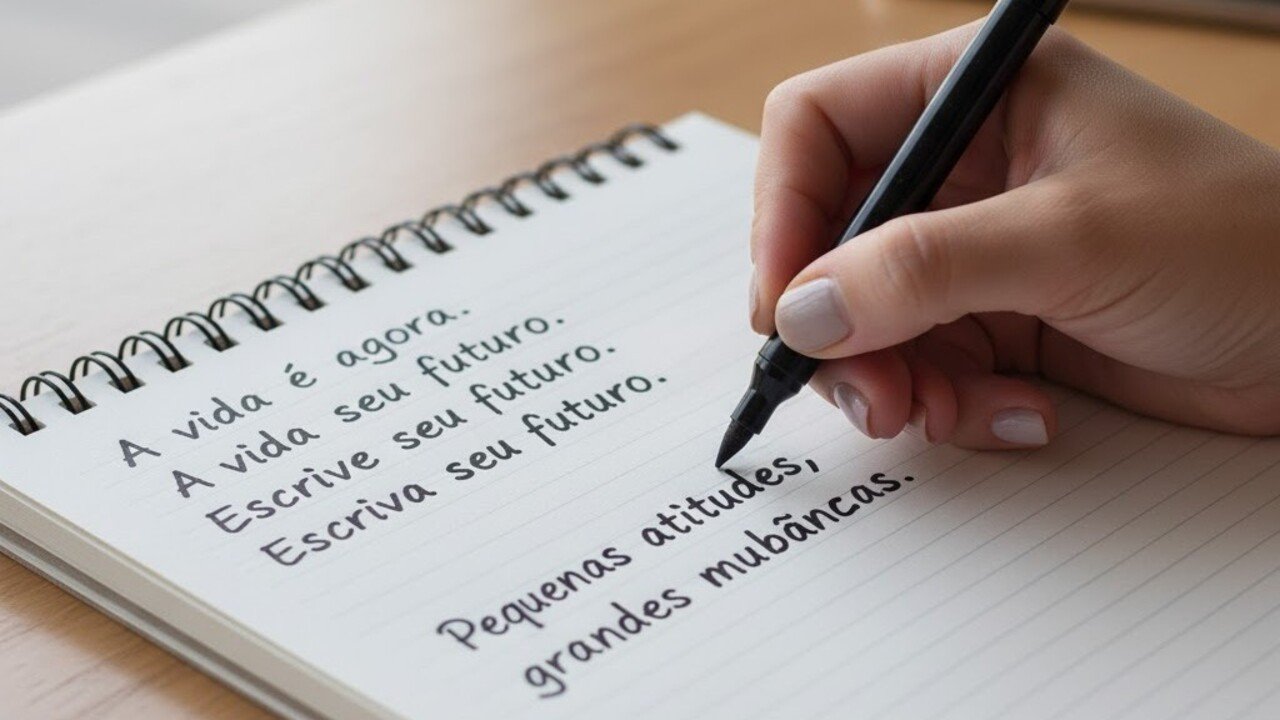 A vida é agora.
A vida seu futuro.
Escrive seu futuro.
Escriva seu futuro.
Pequenas atitudes,
grandes mubãncas.